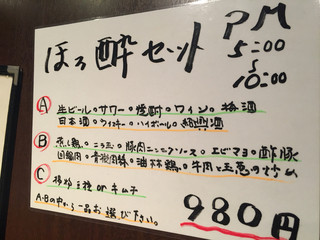 ほろ酔セット
PM 5:00 〜 10:00
Ⓐ 生ビール・サワー・焼酎・ワイン・梅酒
日本酒・ウィスキー・ハイボール・紹興酒
Ⓑ 蒸し鶏・豚肉・エビマヨ・酢豚
回鍋肉・青椒肉絲・油淋鶏・牛肉と玉葱の
Ⓒ 搾菜 or キムチ
A・Bの中から一品お選び下さい。
980円